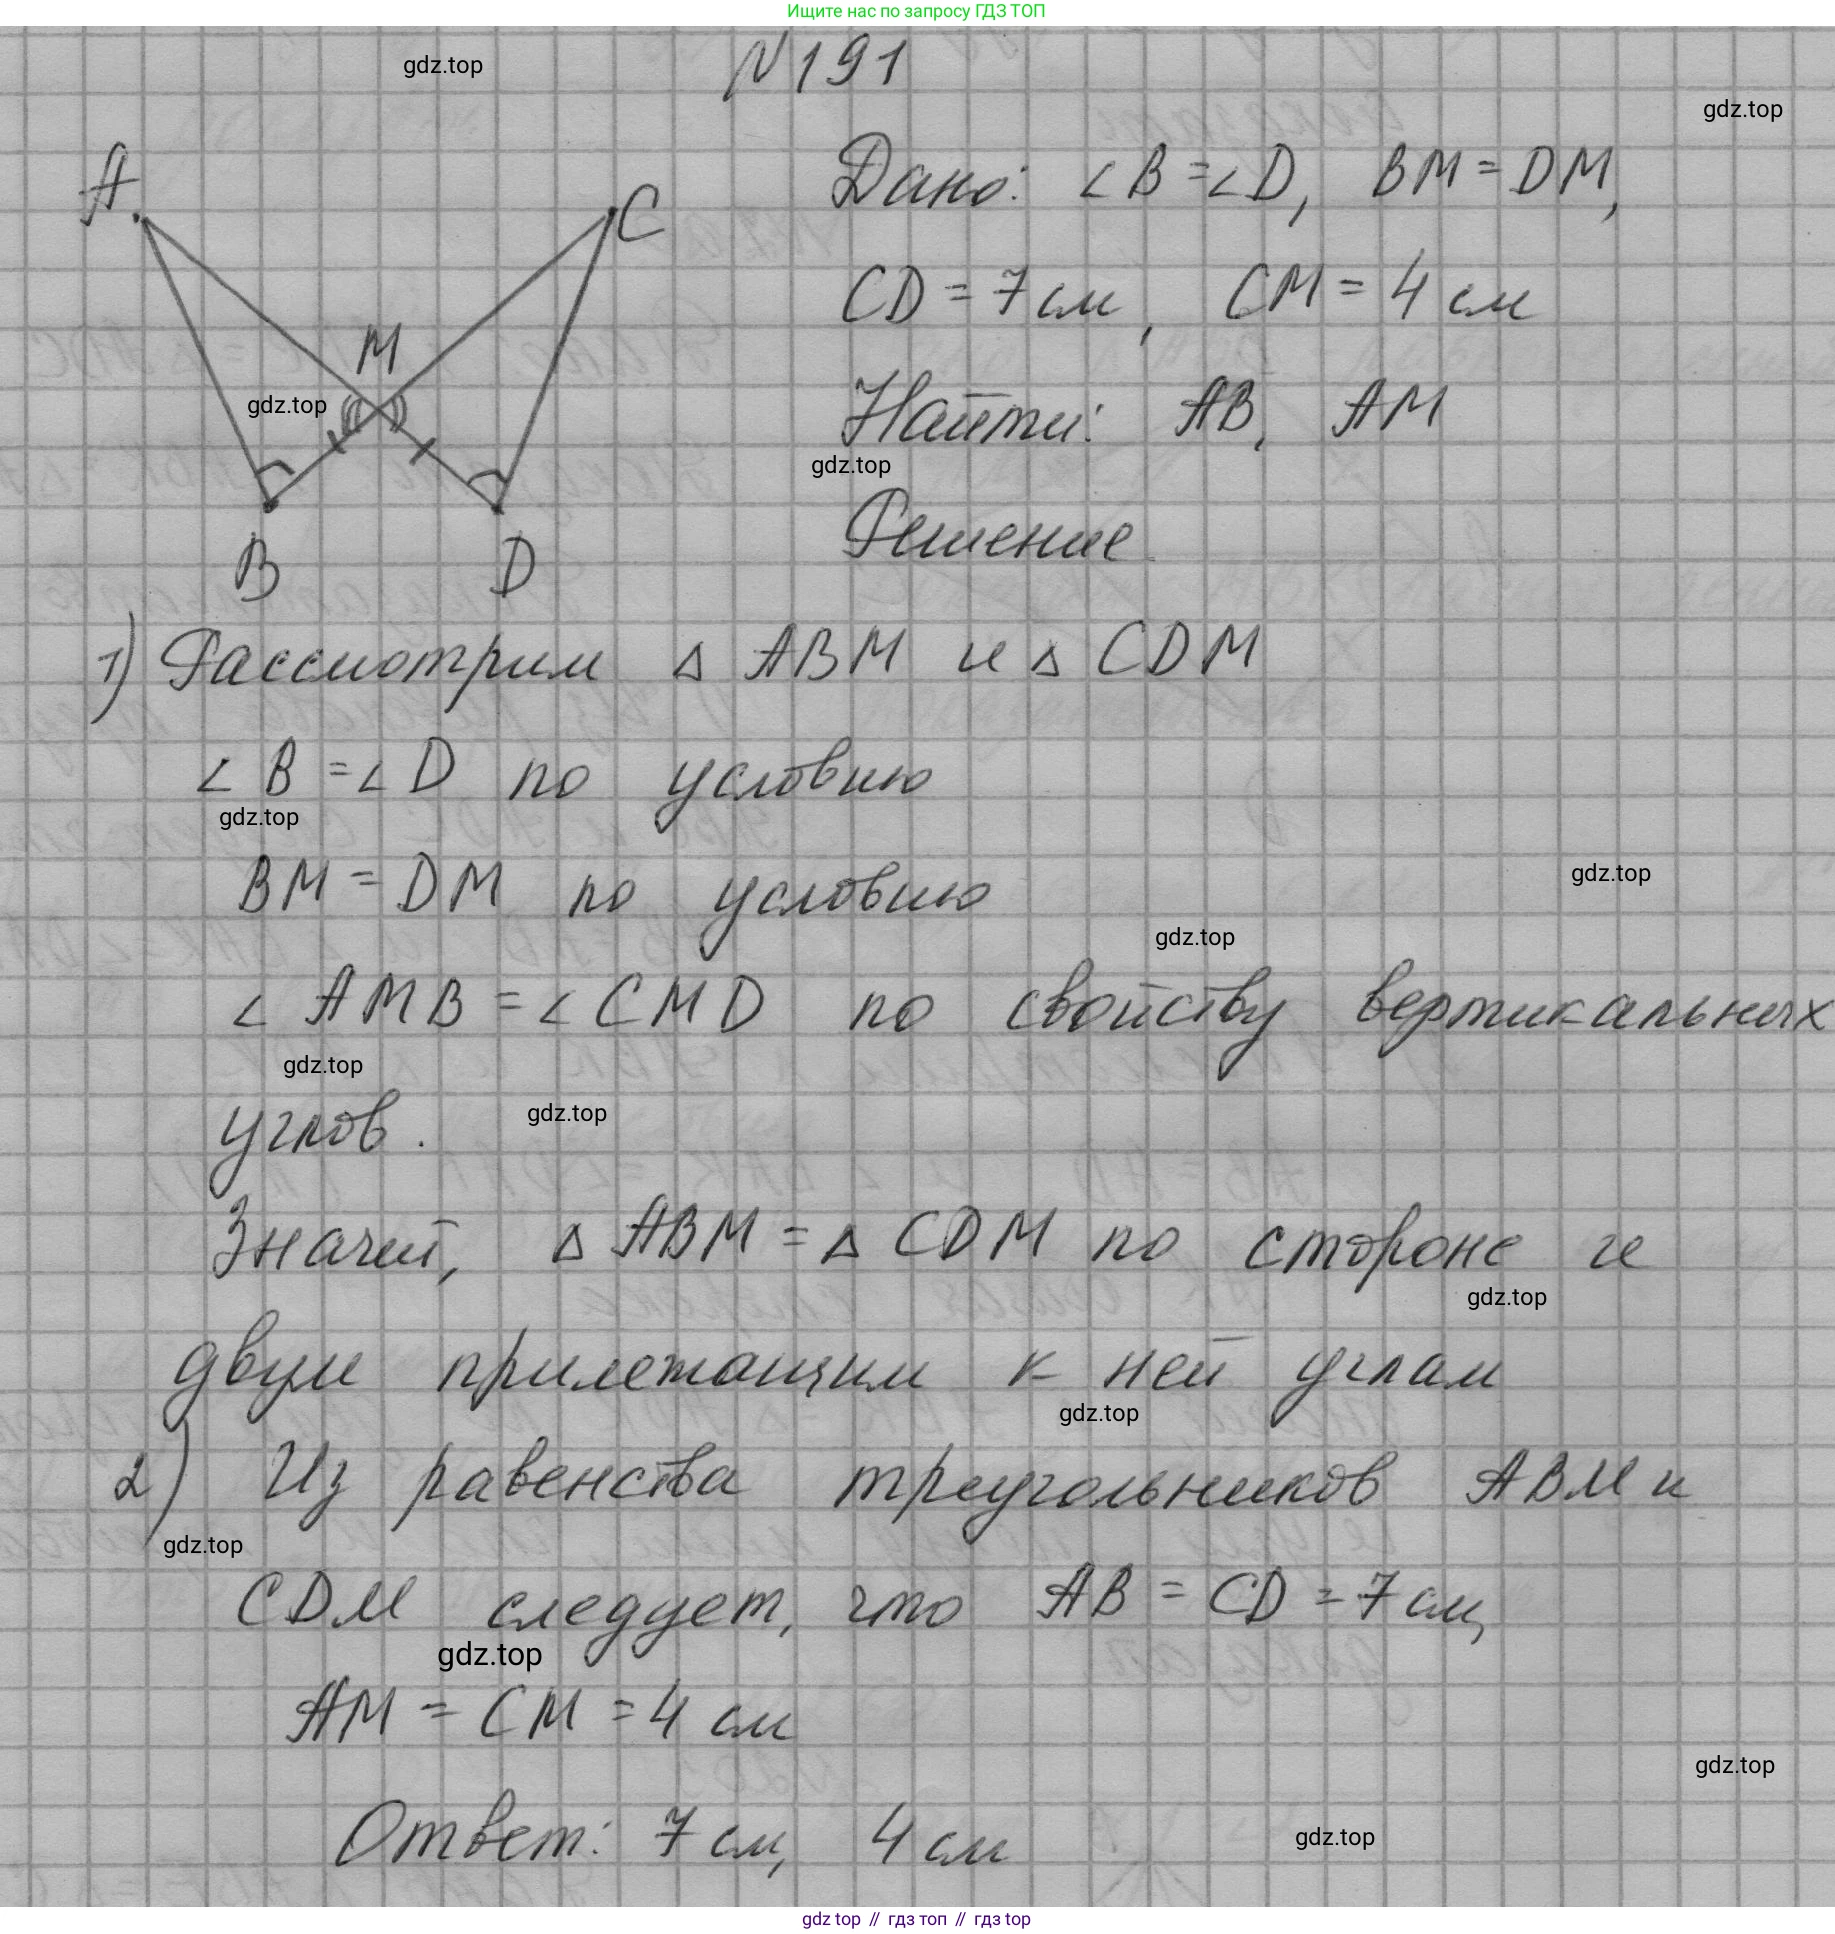 Ищите нас по запросу ГДЗ ТОП
N191
gdz.top
gdz.top
A
C
M
B
D
gdz.top
Дано: ∠B=∠D, BM=DM,
CD=7см, CM=4 см
Найти: AB, AM
gdz.top
Решение
1) Рассмотрим △ ABM и △ CDM
∠B=∠D по условию
gdz.top
BM=DM по условию
gdz.top
gdz.top
∠AMB=∠CMD по свойству вертикальных
gdz.top
углов.
gdz.top
Значит, △ABM=△CDM по стороне и
gdz.top
двум прилежащим к ней углам
gdz.top
2) Из равенства треугольников ABM и
gdz.top
CDM следует, что AB=CD=7см,
gdz.top
AM=CM=4 см
gdz.top
Ответ: 7 см, 4 см
gdz.top
gdz top // гдз топ // гдз top